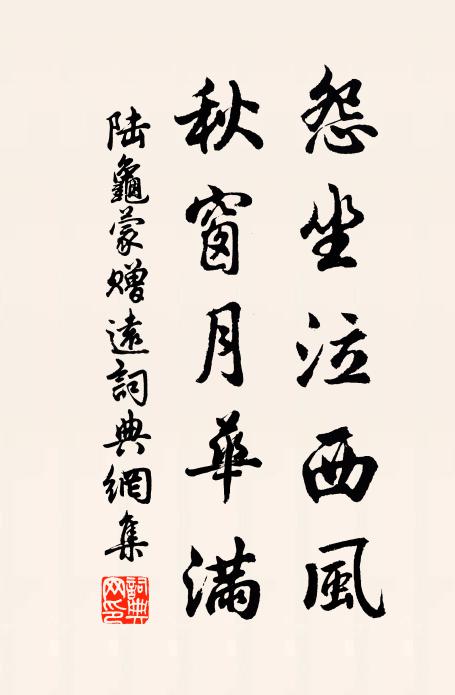 怨坐泣西風
秋窗月華滿
陆龜蒙赠遠詞典網集
詞典网印